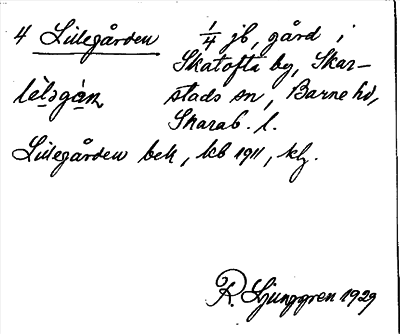 4 Lillegården 1/4 jb, gård i
Skatofta by, Skar-
stads sn, Barne hd,
Skarab. l.
Lillegården bek, kb 1911, klg.
R. Ljunggren 1929